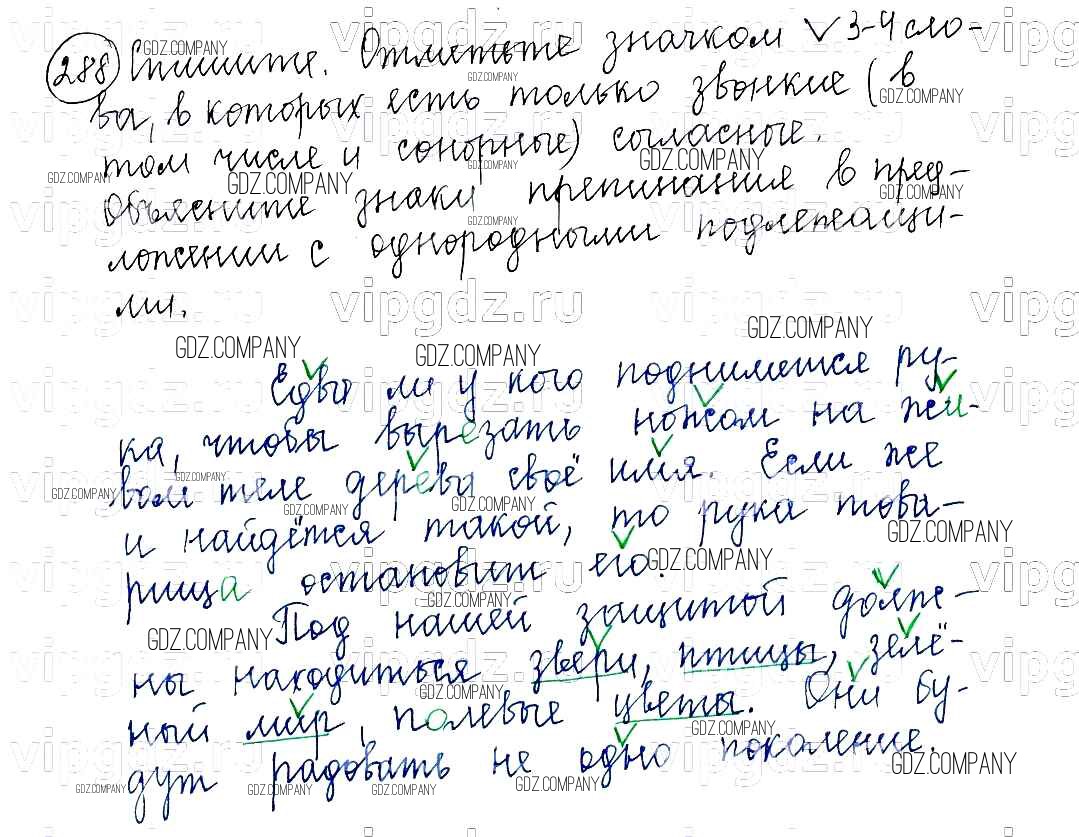 288 Спишите. Отметьте значком ✓ 3-4 сло-
ва, в которых есть только звонкие (в
том числе и сонорные) согласные.
Объясните знаки препинания в пред-
ложении с однородными подлежащи-
ми.
Едва ли у кого поднимется ру-
ка, чтобы вырезать ножом на жи-
вом теле дерева своё имя. Если же
и найдётся такой, то рука това-
рища остановит его.
Под нашей защитой долж-
ны находиться звери, птицы, зелё-
ный мир, полевые цветы. Они бу-
дут радовать не одно поколение.